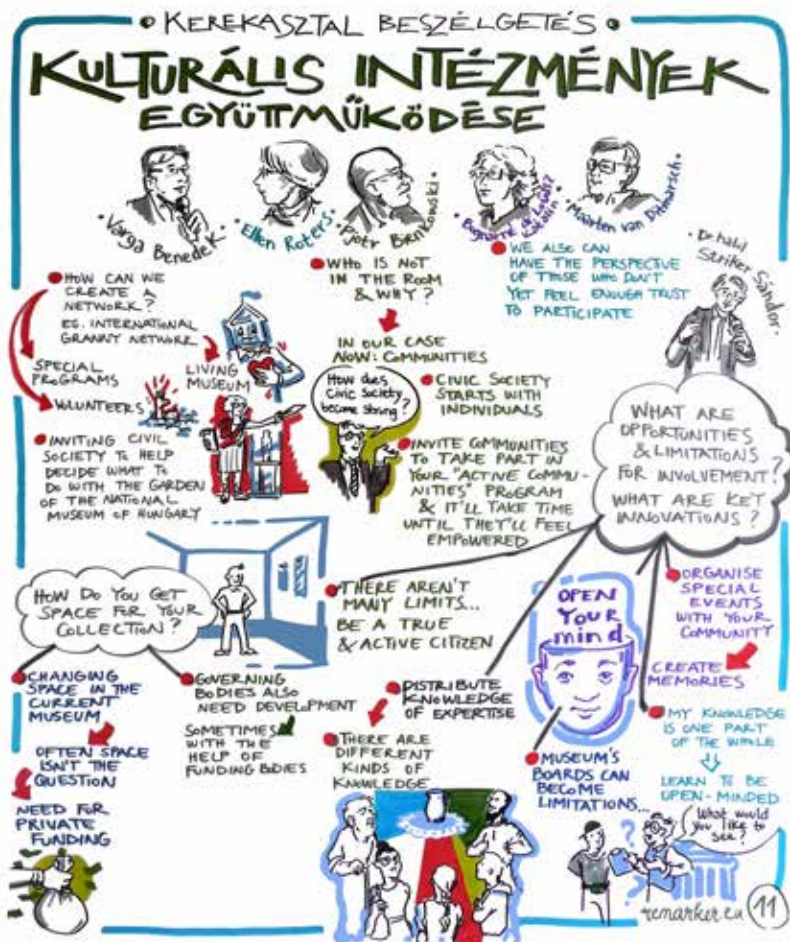 KEREKASZTAL BESZÉLGETÉS
KULTURÁLIS INTÉZMÉNYEK
EGYÜTTMŰKÖDÉSE
Varga Benedek
Ellen Roters
Katalin
Maarten van Ditmarsch
Dr habil
Striker Sándor
HOW CAN WE
CREATE A
NETWORK?
EG. INTERNATIONAL
GRANNY NETWORK
SPECIAL
PROGRAMS
LIVING
MUSEUM
VOLUNTEERS
INVITING CIVIL
SOCIETY TO HELP
DECIDE WHAT TO
DO WITH THE GARDEN
OF THE NATIONAL
MUSEUM OF HUNGARY
WHO IS NOT
IN THE ROOM
& WHY?
IN OUR CASE
NOW: COMMUNITIES
How does
Civic Society
become strong?
CIVIC SOCIETY
STARTS WITH
INDIVIDUALS
INVITE COMMUNITIES
TO TAKE PART IN
YOUR "ACTIVE COMMU-
NITIES" PROGRAM
& IT'LL TAKE TIME
UNTIL THEY'LL FEEL
EMPOWERED
WE ALSO CAN
HAVE THE PERSPECTIVE
OF THOSE WHO DON'T
YET FEEL ENOUGH TRUST
TO PARTICIPATE
WHAT ARE
OPPORTUNITIES
& LIMITATIONS
FOR INVOLVEMENT?
WHAT ARE KEY
INNOVATIONS?
HOW DO YOU GET
SPACE FOR YOUR
COLLECTION?
CHANGING
SPACE IN THE
CURRENT
MUSEUM
OFTEN SPACE
ISN'T THE
QUESTION
NEED FOR
PRIVATE
FUNDING
GOVERNING
BODIES ALSO
NEED DEVELOPMENT
SOMETIMES
WITH THE
HELP OF
FUNDING BODIES
THERE AREN'T
MANY LIMITS...
BE A TRUE
& ACTIVE CITIZEN
DISTRIBUTE
KNOWLEDGE
OF EXPERTISE
THERE ARE
DIFFERENT
KINDS OF
KNOWLEDGE
OPEN
YOUR
mind
MUSEUM'S
BOARDS CAN
BECOME
LIMITATIONS...
ORGANISE
SPECIAL
EVENTS
WITH YOUR
COMMUNITY
CREATE
MEMORIES
MY KNOWLEDGE
IS ONE PART
OF THE WHOLE
LEARN TO BE
OPEN-MINDED
What would
you like to
see?
?
remarker.eu 11